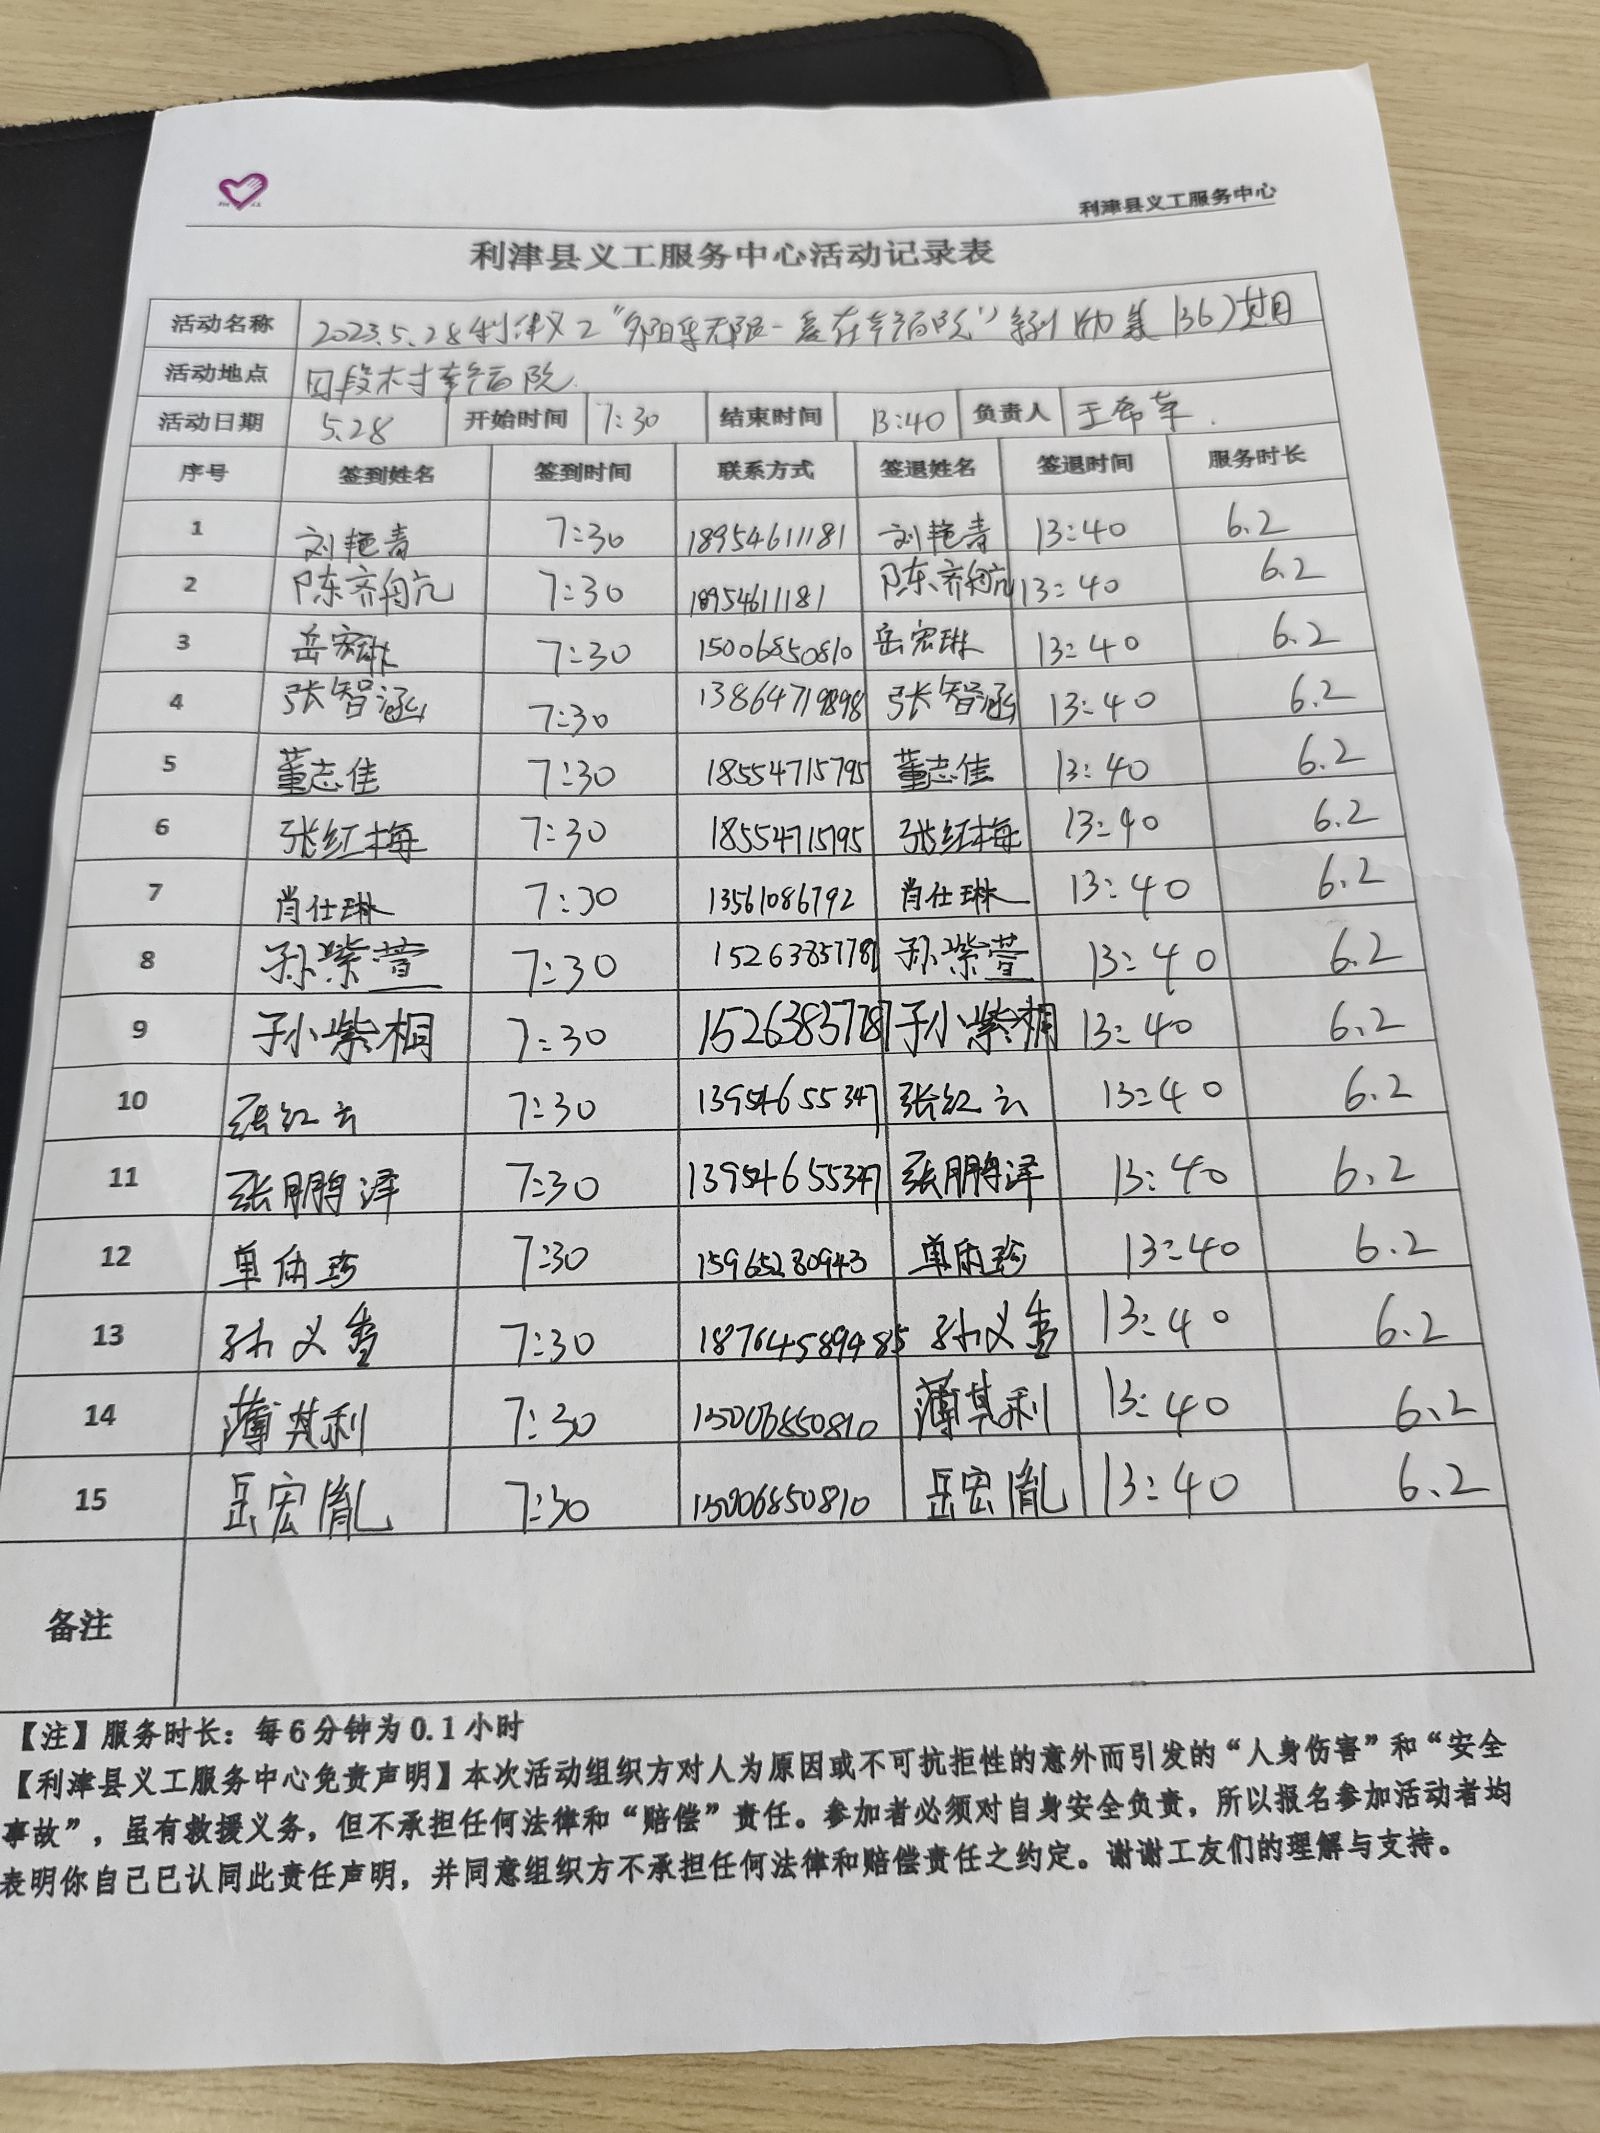 利津县义工服务中心
利津县义工服务中心活动记录表
活动名称 2023.5.28利津义工"夕阳乐无限-爱在幸福院"系列 136)
活动地点 段木村幸福院
活动日期 5.28 开始时间 7:30 结束时间 13:40 负责人 王希
序号 签到姓名 签到时间 联系方式 签退姓名 签退时间 服务时长
1 刘艳青 7:30 18954611181 刘艳青 13:40 6.2
2 陈齐翔航 7:30 18954611181 陈齐翔航 13:40 6.2
3 岳宏琳 7:30 15006850810 岳宏琳 13:40 6.2
4 张智涵 7:30 13864719898 张智涵 13:40 6.2
5 董志佳 7:30 18554715795 董志佳 13:40 6.2
6 张红梅 7:30 18554715795 张红梅 13:40 6.2
7 肖仕琳 7:30 13561086792 肖仕琳 13:40 6.2
8 孙紫萱 7:30 15263857787 孙紫萱 13:40 6.2
9 孙紫桐 7:30 15263857787 孙紫桐 13:40 6.2
10 张红云 7:30 13954655347 张红云 13:40 6.2
11 张鹏泽 7:30 13954655347 张鹏泽 13:40 6.2
12 单 珍 7:30 15965280943 单 珍 13:40 6.2
13 孙义 7:30 18764589485 孙义 13:40 6.2
14 薄其利 7:30 15006850810 薄其利 13:40 6.2
15 岳宏胤 7:30 15006850810 岳宏胤 13:40 6.2
备注
【注】服务时长：每6分钟为0.1小时
【利津县义工服务中心免责声明】本次活动组织方对人为原因或不可抗拒性的意外而引发的“人身伤害”和“安全
事故”，虽有救援义务，但不承担任何法律和“赔偿”责任。参加者必须对自身安全负责，所以报名参加活动者均
表明你自己已认同此责任声明，并同意组织方不承担任何法律和赔偿责任之约定。谢谢工友们的理解与支持。